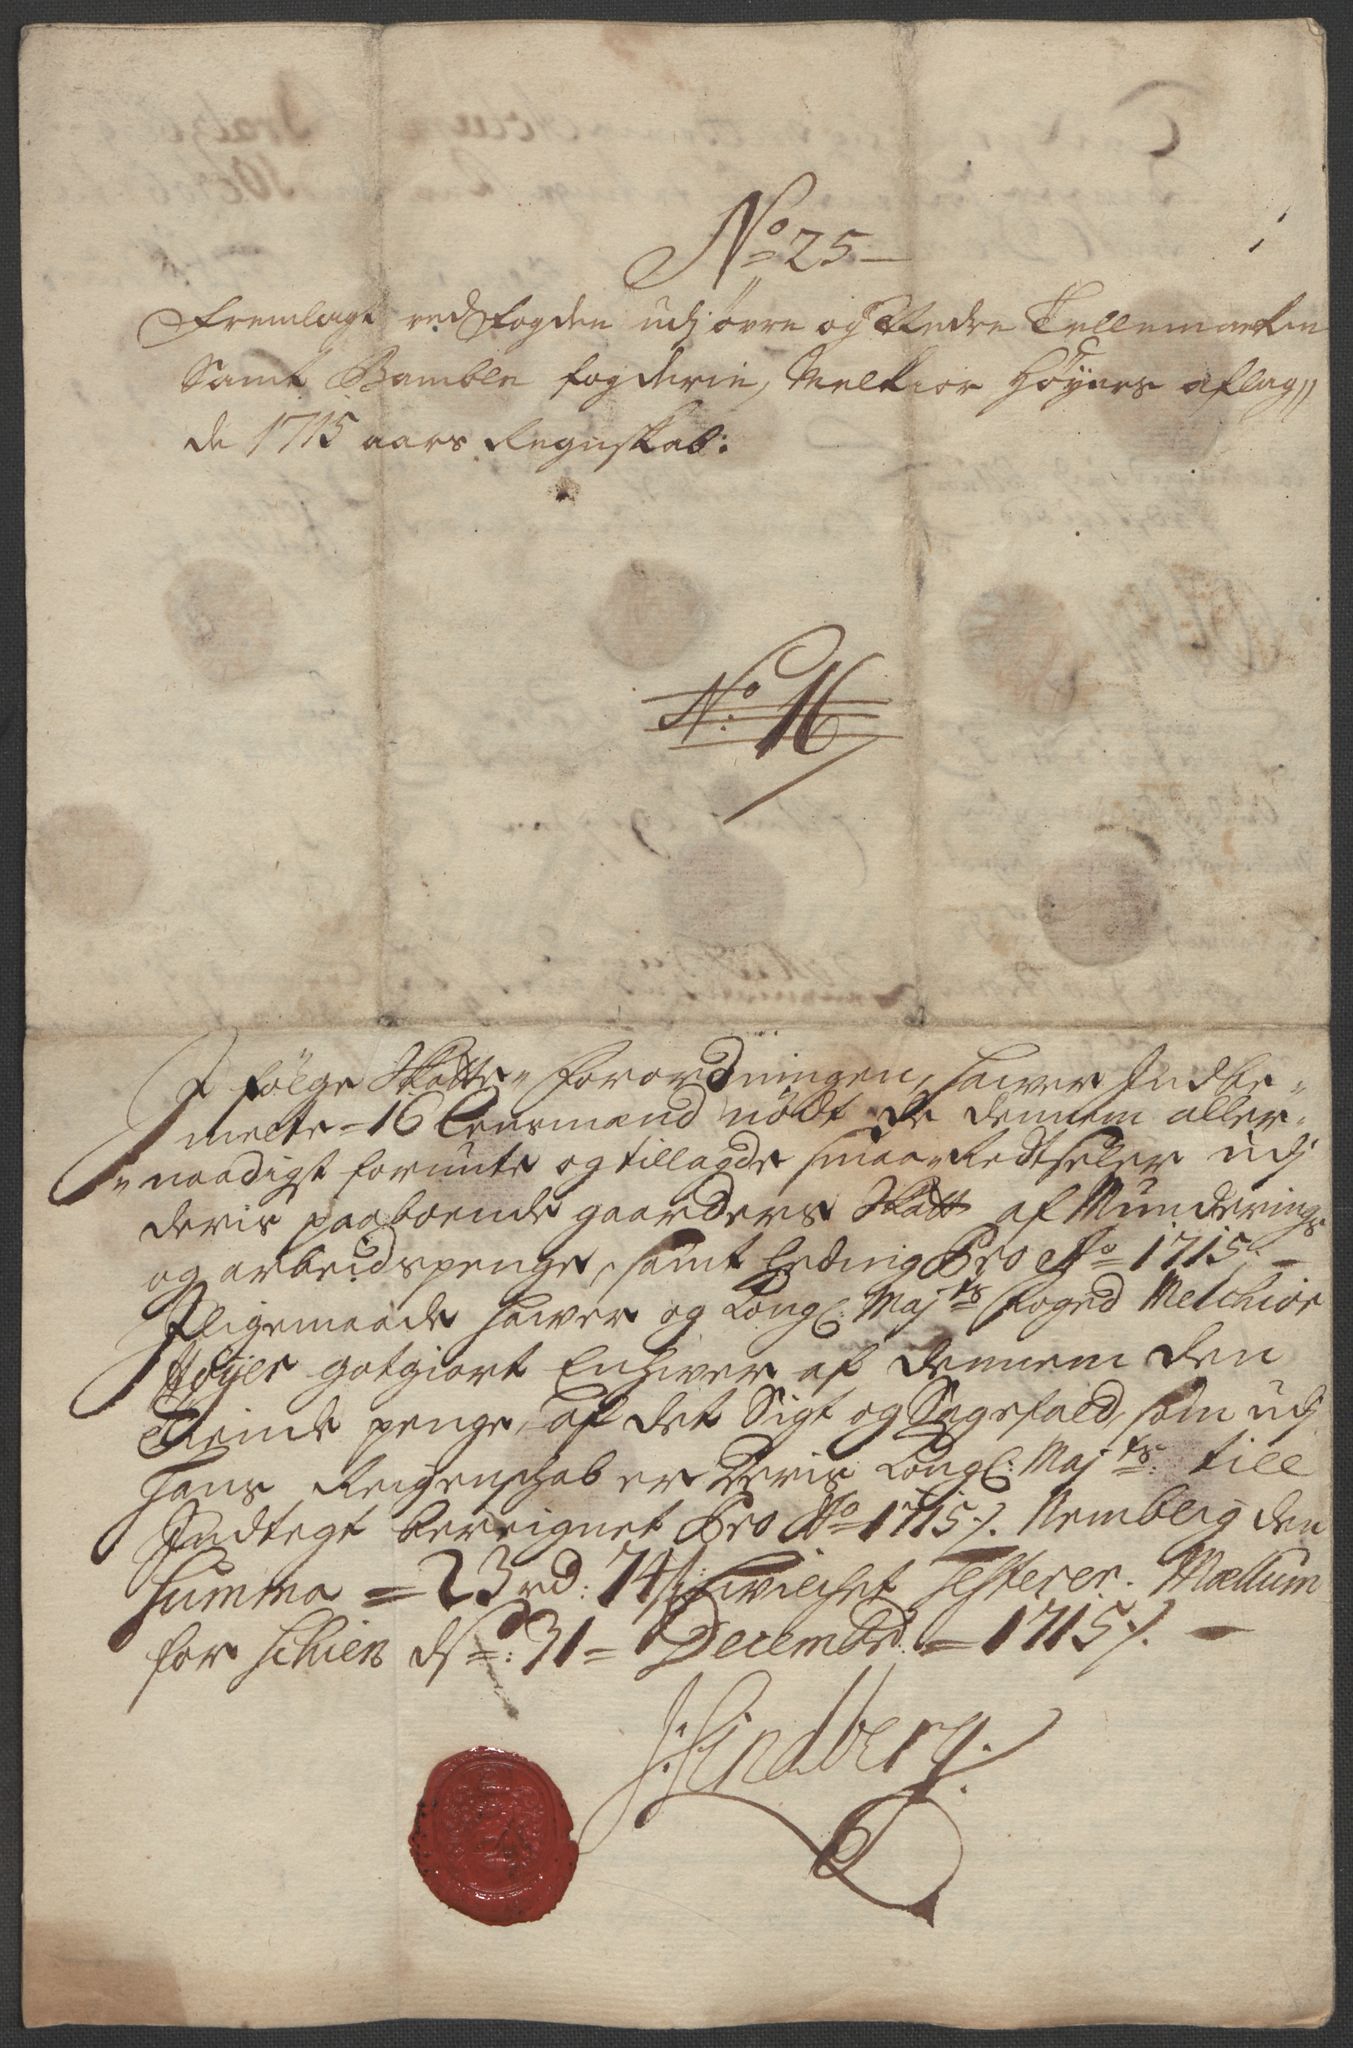 No 25
Fremlagt ved fogden udj øvre og Nedre Tellemarken
Samt Bamble fogderie, Melkior Høyers aflag//
de 1715 aars Regnskab:
No. 16
J følge Skatte-forordningen, hawer Indbe-
melte 16 Lensmænd nødt de dennem aller-
naadigst forunte og tillagde smaa Redtseler udj
deris paaboende gaarders Skatt af Munderings
og arbeidspenge, samt Leding Pro Ao 1715.
Jligemaade hawer og Kongl: Majts foged Melchior
Høyer gotgiort Enhwer af dennem den
tiende penge, af det Sigt og Sagefald, som udj
hans Reigenschab er Deris Kongl: Majts: till
Indtegt bereignet Pro Ao 1715 /. Nemberg den
Summa = 23 rd: 74 s: hwilchet Testerer. Mællum
for Schien ds: 31 = Decembr: = 1715 /.
J: Lindberg.